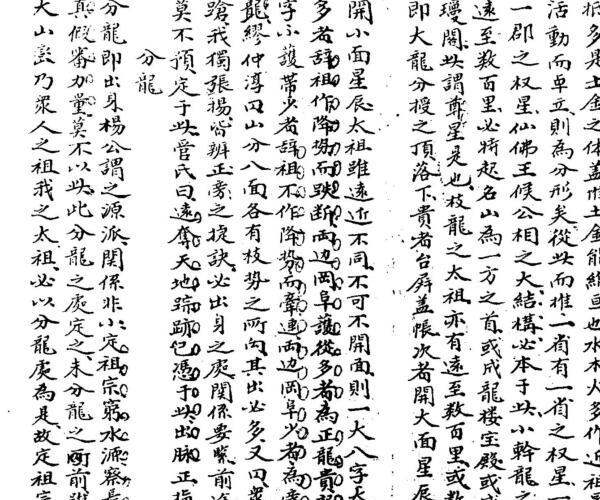 振多是土金之体蓋惟土金能綿亘也水木火多作近祖
活動而卓立則為分形矣從此而推一省有一省之权星
一郡之权星仙佛王候公相之大結構必本于此小幹龍之
遠至数百里必特起名山為一方之首或成龍楼宝殿或
瓊閣此謂尊星是也枝龍之太祖亦有遠至数百里或数
即大龍分授之頂落下貴者台屏蓋帳次者開大面星辰
開小面星辰太祖雖遠近不同不可不開面則一大八字大
多者辞祖作降势而跌断両边岡阜護從多者為正龍貴
字小護帶少者辞祖不作降势而牽連両边岡阜少者為旁
龍繆仲淳曰山分八面各有枝势之所向其出必多又曰衆
蹌我獨張楊皆辨正旁之捉訣必出身之處関係要緊前途
莫不預定于此管氏曰遠奪天地踪跡已憑于此出脉正指
分龍
分龍即出身楊公謂之源派関係非小定祖宗窮水源察長
真假審加量莫不以此此分龍之處定之未分龍之前雖
大山巒乃衆人之祖我之太祖必以分龍處為是故定祖宗